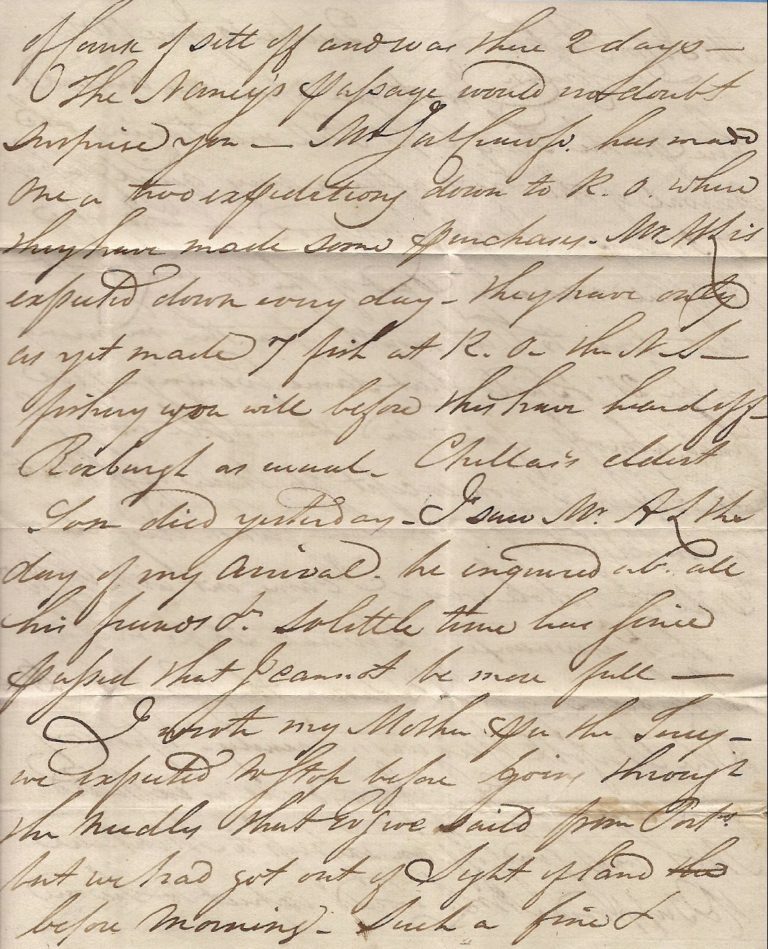 of sett off and was there 2 days —
The Nancy's passage would no doubt
surprise you — Mr has made
one a two expeditions down to R. O. where
they have made some purchases. Mr. is
expected down every day — they have only
as yet made 7 fish at R. O. the N S —
fishery you will before this have heard off —
Roxburgh as usual — eldest
Son died yesterday — I saw Mr. A L the
day of my arrival. he inquired ab. all
his friends &c. so little time has since
passed that I cannot be more full —
I wrote my Mother per the —
we expected to stop before going through
the Needles that we saild from Ports.
but we had got out of Sight of land the
before morning — Such a fine